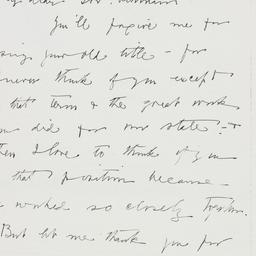 You'll forgive me for
using your old title – for
never think of you except
that term & the great work
you did for our state – &
then I love to think of you
that position because –
worked so closely together.
But let me thank you for